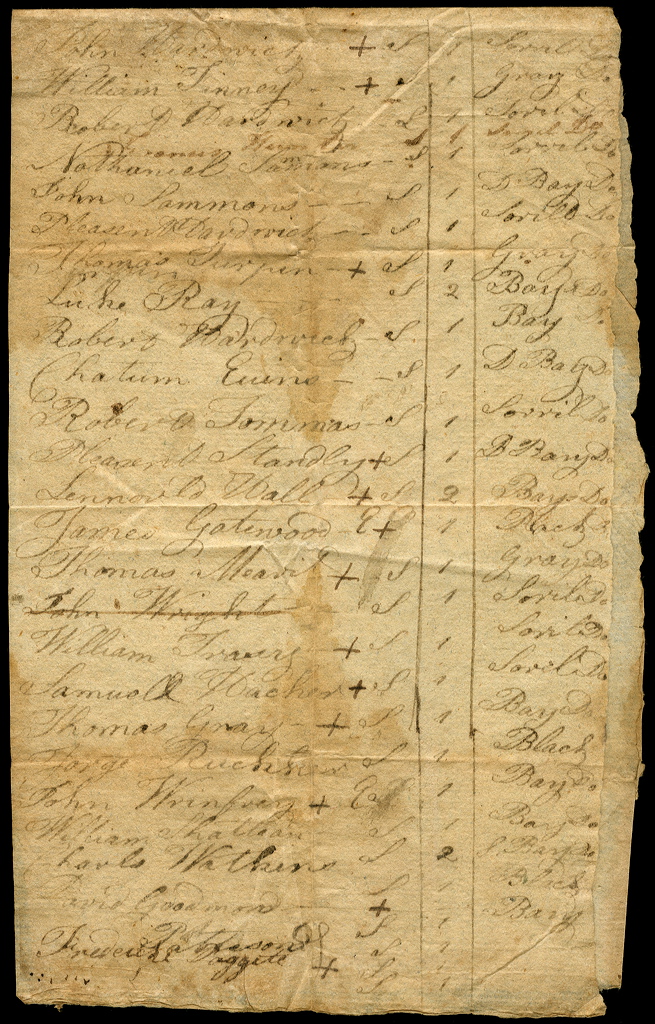 John Hardwich + S 1 Sorril Do
William Finney + S 1 Gray Do
Robert Hardwich S 1 Sorril Do
S 1 Sorril Do
Nathaniel Sammons S 1 Sorril Do
John Sammons S 1 D Bay Do
Pleasent Hardwich S 1 Sorril Do
Thomas Turpin + S 1 Gray Do
Luke Ray S 2 Bays Do
Robert Hardwich S 1 Bay
Chatum Euins S 1 D Bay Do
Robert Tommas S 1 Sorril Do
Pleasent Standly + S 1 B Bay Do
Lennorld Wall + S 2 Bays Do
James Gatewood + 1 Black
Thomas Meavil + S 1 Gray Do
John Wright S 1 Sorril Do
William Travis + S 1 Sorril Do
Samuell Hacher + S 1 Sorril Do
Thomas Gray + S 1 Bay Do
Forge S 1 Black
John Winfrey + 1 Bay Do
William S 1 Bay Do
Charls Wathins S 2 Bay Do
David Goodmon + S 1 Black
Patteson S 1 Bay
Frederick + S 1